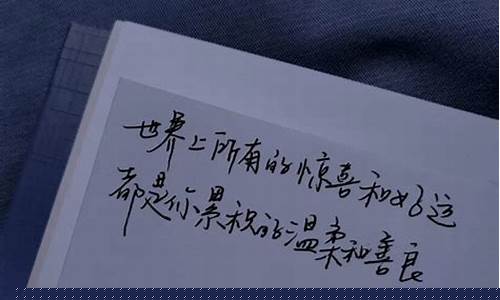 世界上所有的惊喜和好运
都是你累积的温柔和善良